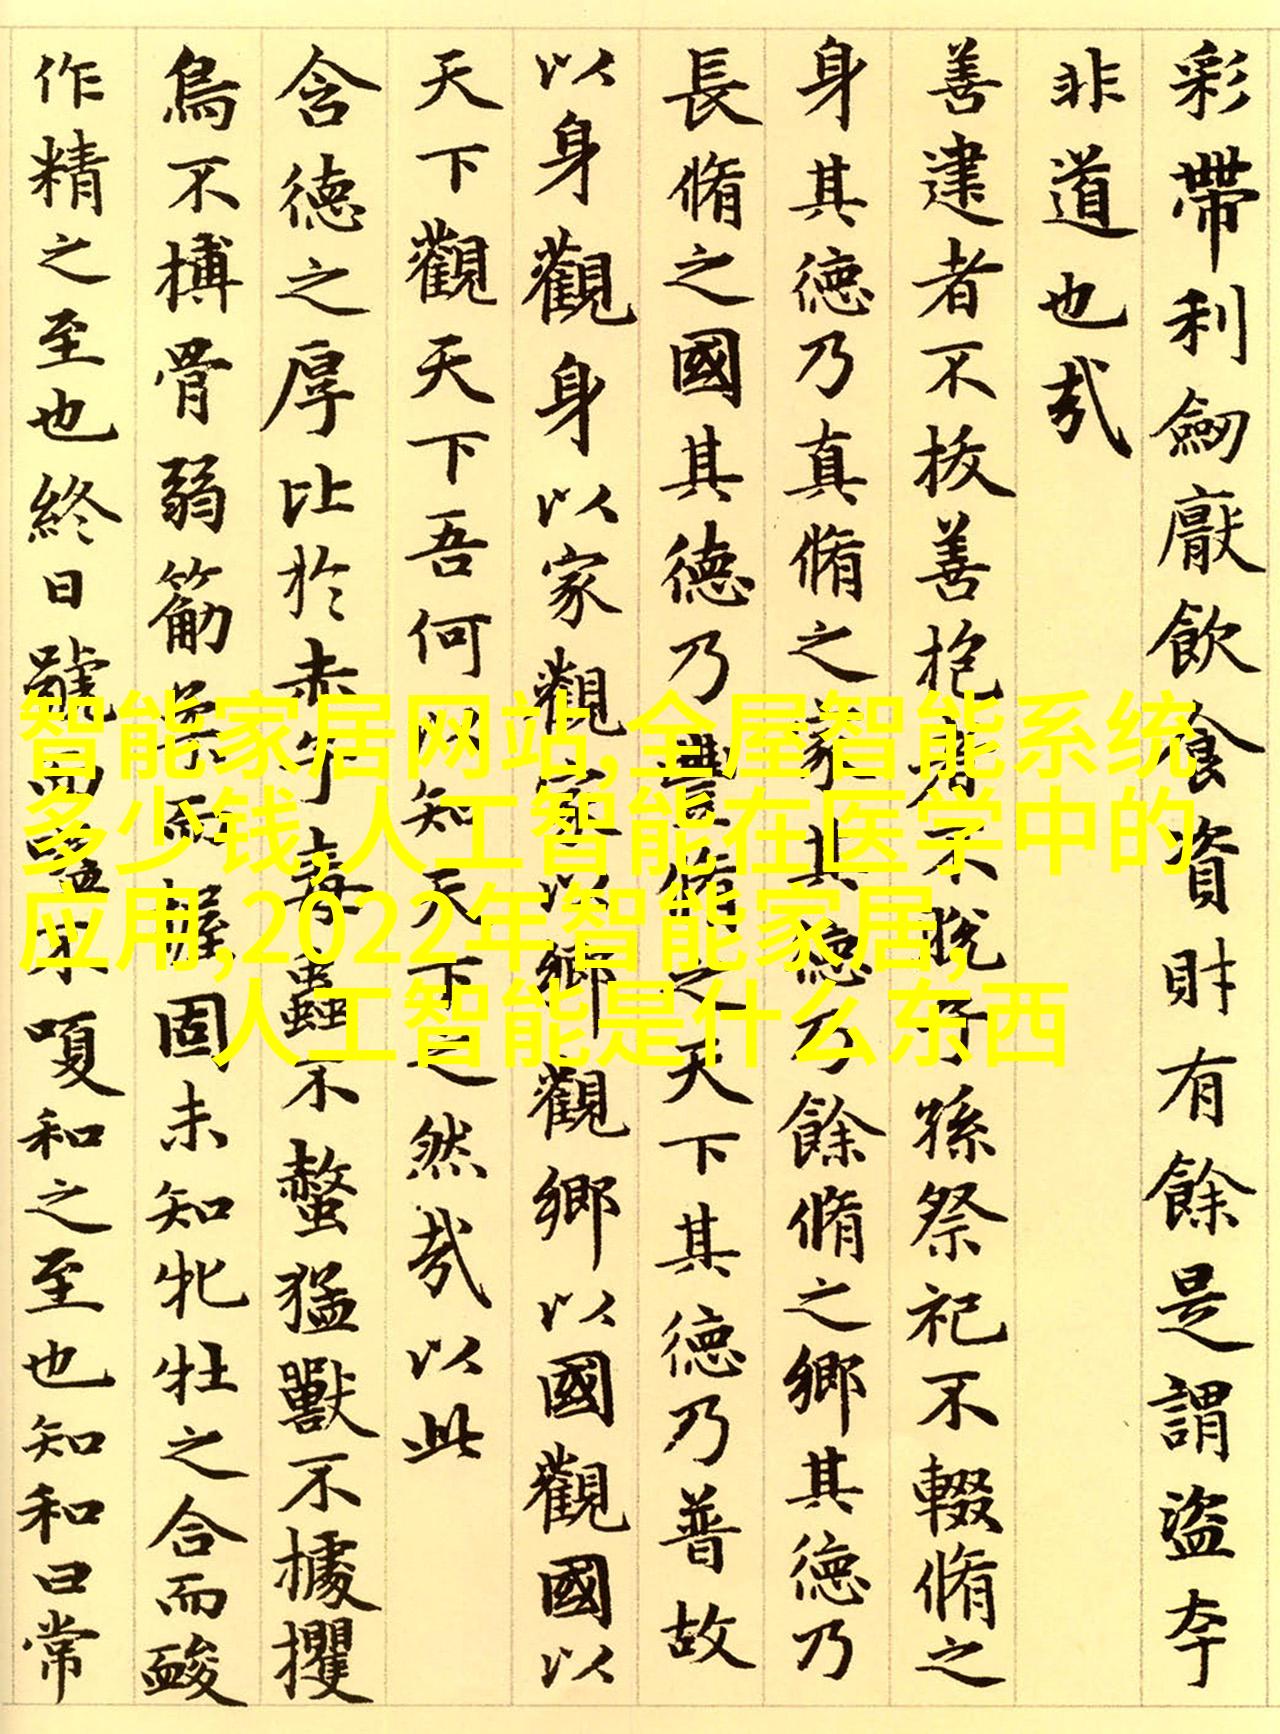 彩帶利劒厭飲食資財有餘是謂盜夸
非道也哉
善建者不拔善抱者不脫子孫祭祀不輟脩之
身其德乃真脩之家其德乃餘脩之鄉其德乃
長脩之國其德乃豐脩之天下其德乃普故
以身觀身以家觀家以鄉觀鄉以國觀國以
天下觀天下吾何以知天下之然哉以此
含德之厚比於赤子毒蟲不螫猛獸不據攫
鳥不搏骨弱筋柔而握固未知牝牡之合而酸
作精之至也終日號而嗌不嗄和之至也知和曰常
智能家居网站,全屋智能系统
多少钱,人工智能在医学中的
应用,2022年智能家居,
人工智能是什么东西